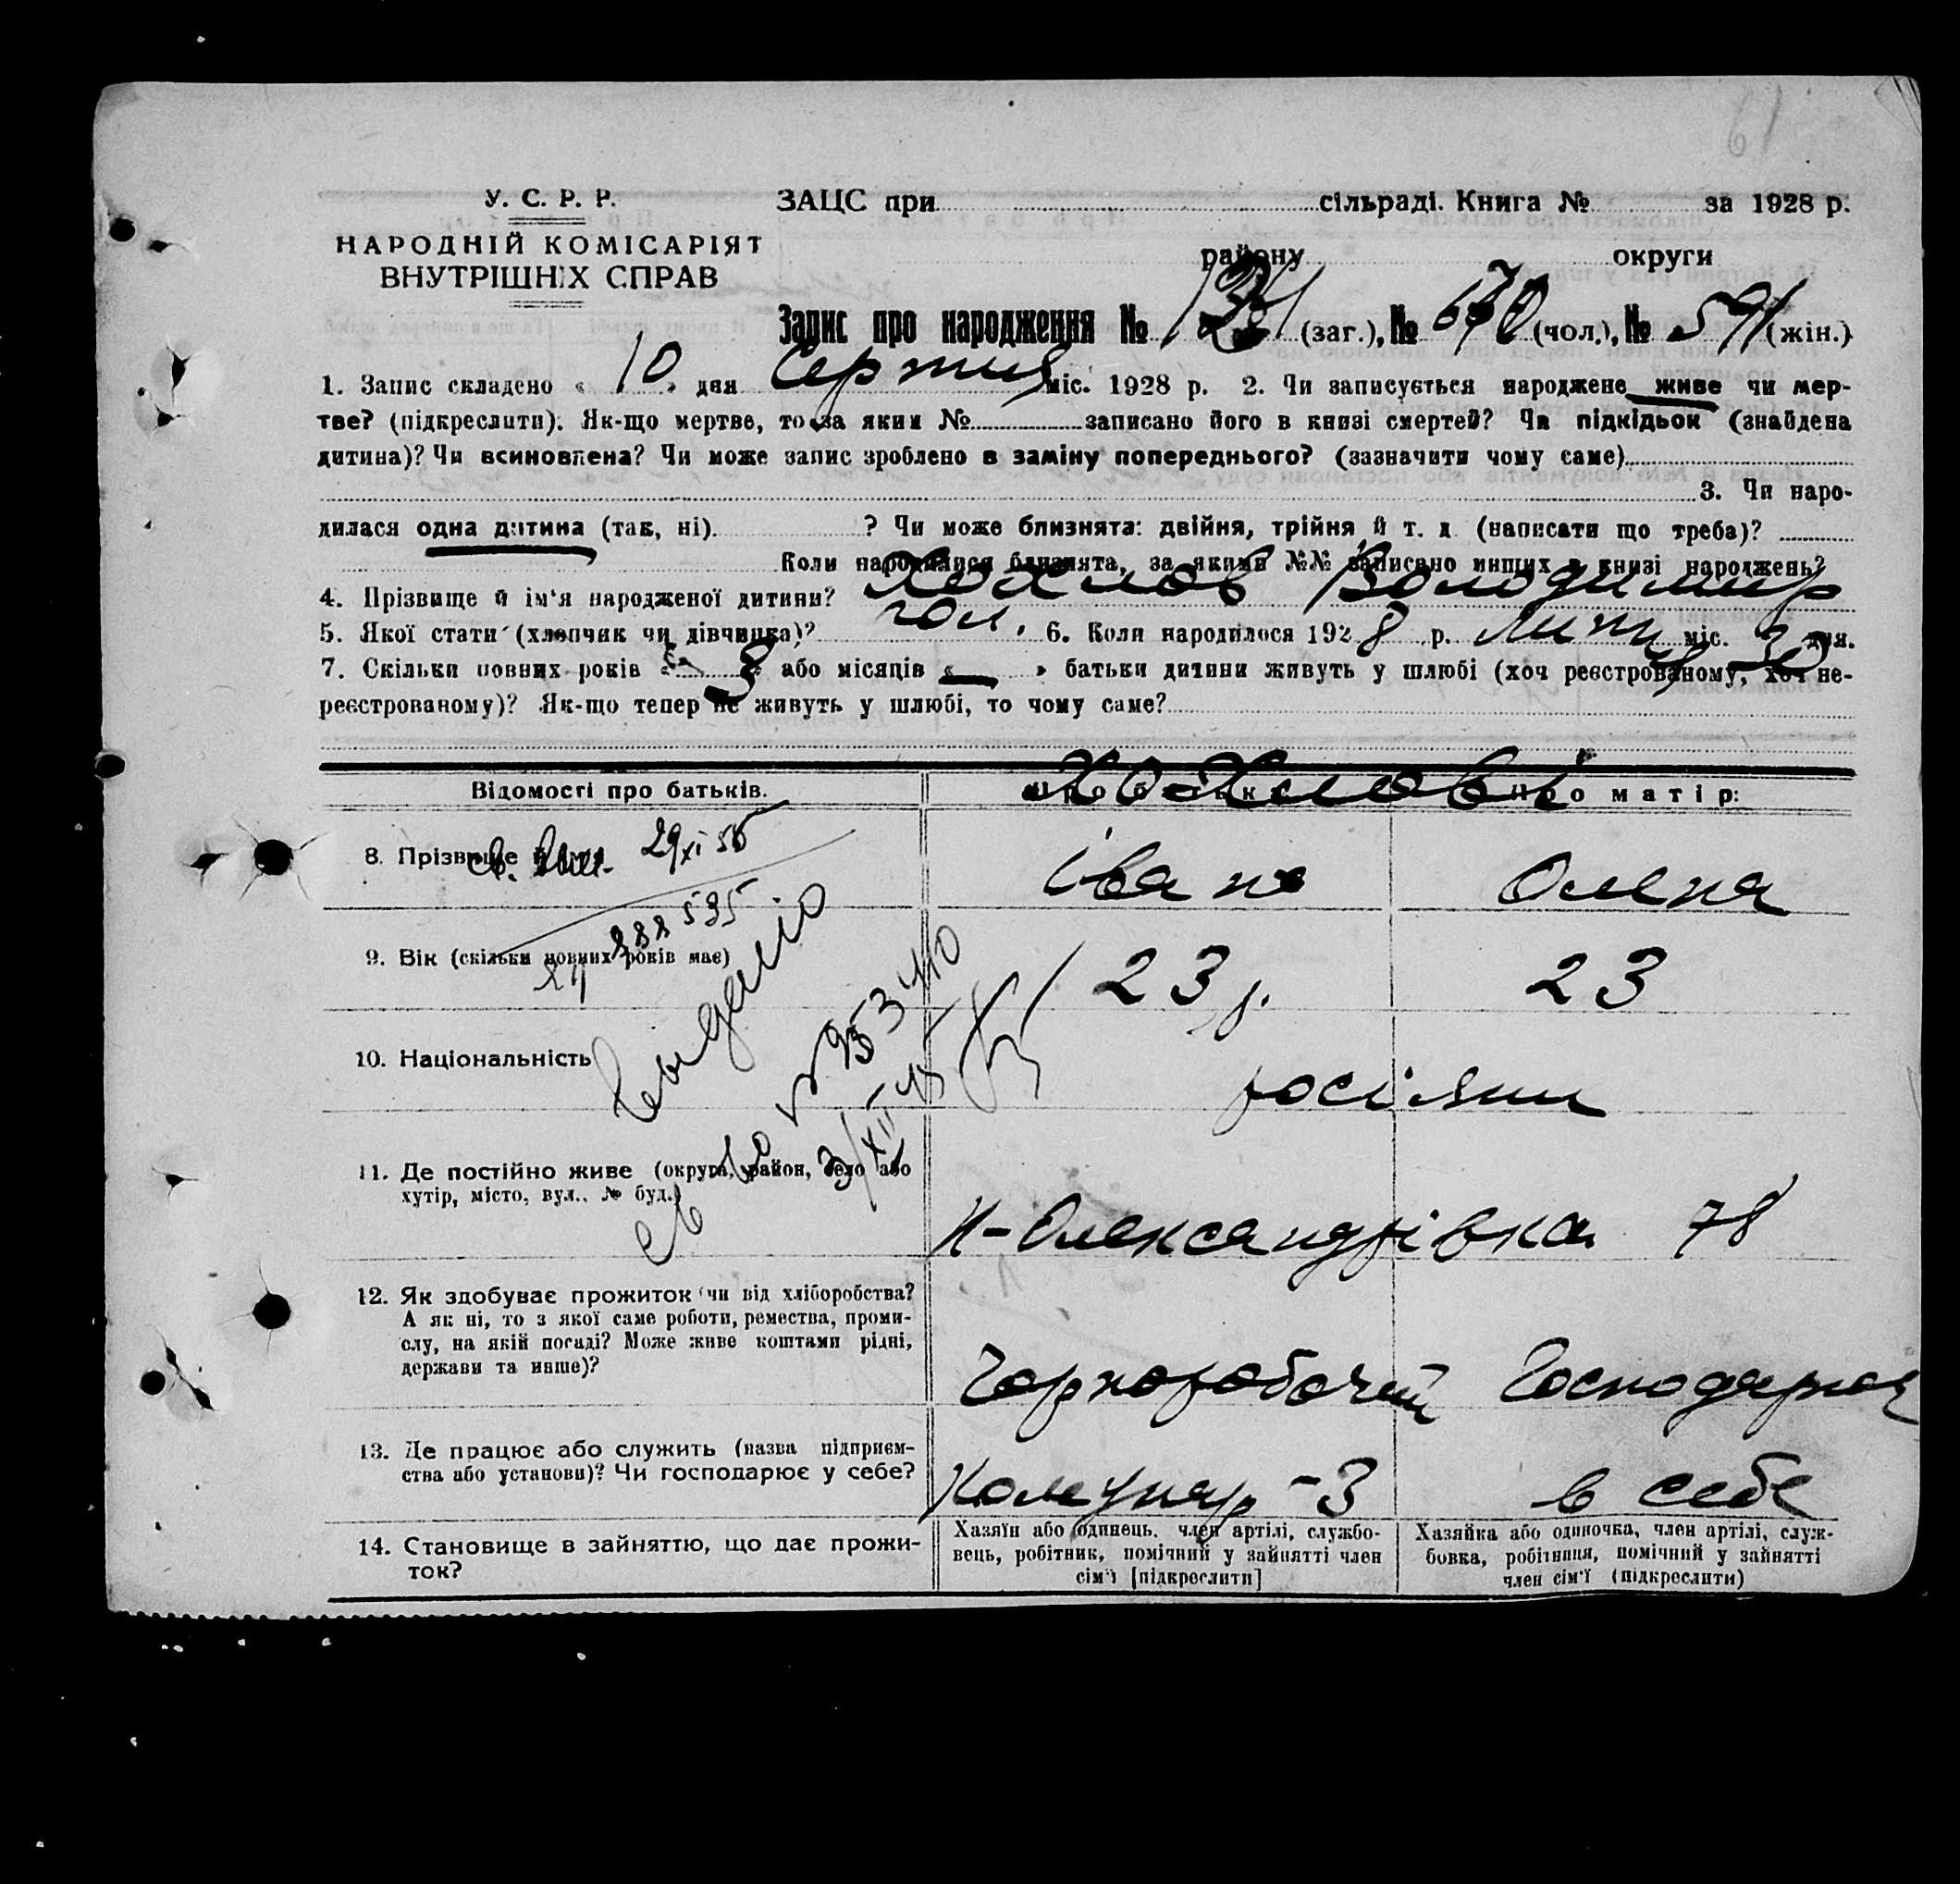 61
У. С. Р. Р.
НАРОДНІЙ КОМІСАРІЯТ
ВНУТРІШНІХ СПРАВ
ЗАЦС при сільраді. Книга № за 1928 р.
району округи
Запис про народження № (заг.), № 670 (чол.), № 591 (жін.)
1. Запис складено « 10 » дня Серпня міс. 1928 р. 2. Чи записується народжене живе чи мер-
тве? (підкреслити). Як-що мертве, то за яким № записано його в книзі смертей? Чи підкідьок (знайдена
дитина)? Чи всиновлена? Чи може запис зроблено в заміну попереднього? (зазначити чому саме)
3. Чи наро-
дилася одна дитина (так, ні). ? Чи може близнята: двійня, трійня й т. д. (написати що треба)?
Коли народилися близнята, за якими №№ записано инших в книзі народжень?
4. Прізвище й ім'я народженої дитини? Хохлов Володимир
5. Якої стати (хлопчик чи дівчинка)? чол. 6. Коли народилося 1928 р. Липня міс. 30 дня.
7. Скільки повних років « 8 » або місяців « — » батьки дитини живуть у шлюбі (хоч реєстрованому, хоч не-
реєстрованому)? Як-що тепер не живуть у шлюбі, то чому саме?
Відомості про батьків. Про батька Про матір:
Хохлови
8. Прізвище й ім'я Іван Олена
29 XI 55
9. Вік (скільки повних років має) 23 р. 23
10. Національність росіяни
11. Де постійно живе (округа, район, село або
хутір, місто, вул., № буд.)
Н-Олександрівка 78
12. Як здобуває прожиток (чи від хліборобства?
А як ні, то з якої саме роботи, ремества, проми-
слу, на якій посаді? Може живе коштами рідні,
держави та инше)?
Чорноробочий Господарює
13. Де працює або служить (назва підприєм-
ства або установи)? Чи господарює у себе?
Комунар - 3 в себе
14. Становище в зайняттю, що дає прожи-
ток?
Хазяїн або одинець, член артілі, службо-
вець, робітник, помічний у зайнятті член
сім'ї [підкреслити]
Хазяйка або одиночка, член артілі, служ-
бовка, робітниця, помічний у зайнятті
член сім'ї (підкреслити)